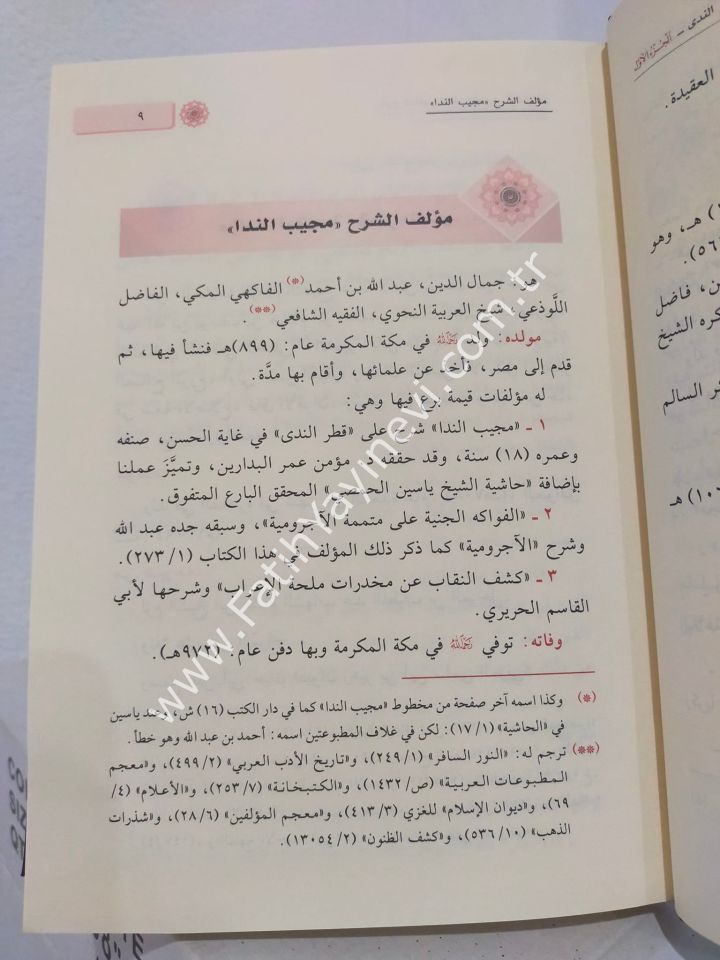 مؤلف الشرح «مجيب الندا»
٩
مؤلف الشرح «مجيب الندا»
هو: جمال الدين، عبد الله بن أحمد(*) الفاكهي المكي، الفاضل
اللَّوذعي، شيخ العربية النحوي، الفقيه الشافعي(**).
مولده: ولد رَحِمَهُ اللَّهُ في مكة المكرمة عام: (٨٩٩)هـ فنشأ فيها، ثم
قدم إلى مصر، فأخذ عن علمائها، وأقام بها مدَّة.
له مؤلفات قيمة برع فيها وهي:
١ ـ «مجيب الندا» شرح على «قطر الندى» في غاية الحسن، صنفه
وعمره (١٨) سنة، وقد حققه د. مؤمن عمر البدارين، وتميَّزَ عملنا
بإضافة «حاشية الشيخ ياسين الحمصي» المحقق البارع المتفوق.
٢ ـ «الفواكه الجنية على متممة الآجرومية»، وسبقه جده عبد الله
وشرح «الآجرومية» كما ذكر ذلك المؤلف في هذا الكتاب (١/ ٢٧٣).
٣ ـ «كشف النقاب عن مخدرات ملحة الإعراب» وشرحها لأبي
القاسم الحريري.
وفاته: توفي رَحِمَهُ اللَّهُ في مكة المكرمة وبها دفن عام: (٩٧٢هـ).
(*) وكذا اسمه آخر صفحة من مخطوط «مجيب الندا» كما في دار الكتب (١٦) ش، وعند ياسين
في «الحاشية» (١/ ١٧): لكن في غلاف المطبوعتين اسمه: أحمد بن عبد الله وهو خطأ.
(**) ترجم له: «النور السافر» (١/ ٢٤٩)، و«تاريخ الأدب العربي» (٢/ ٤٩٩)، و«معجم
المطبوعات العربية» (ص/ ١٤٣٢)، و«الكتبخانة» (٧/ ٢٥٣)، و«الأعلام» (٤/
٦٩)، و«ديوان الإسلام» للغزي (٣/ ٤١٣)، و«معجم المؤلفين» (٦/ ٢٨)، و«شذرات
الذهب» (١٠/ ٥٣٦)، و«كشف الظنون» (٢/ ١٣٠٥٤).
www.FatihYayinevi.com.tr
الندى ـ الجزء الأول
العقيدة.
) هـ، وهو
ن، فاضل
كره الشيخ
ر السالم
) هـ